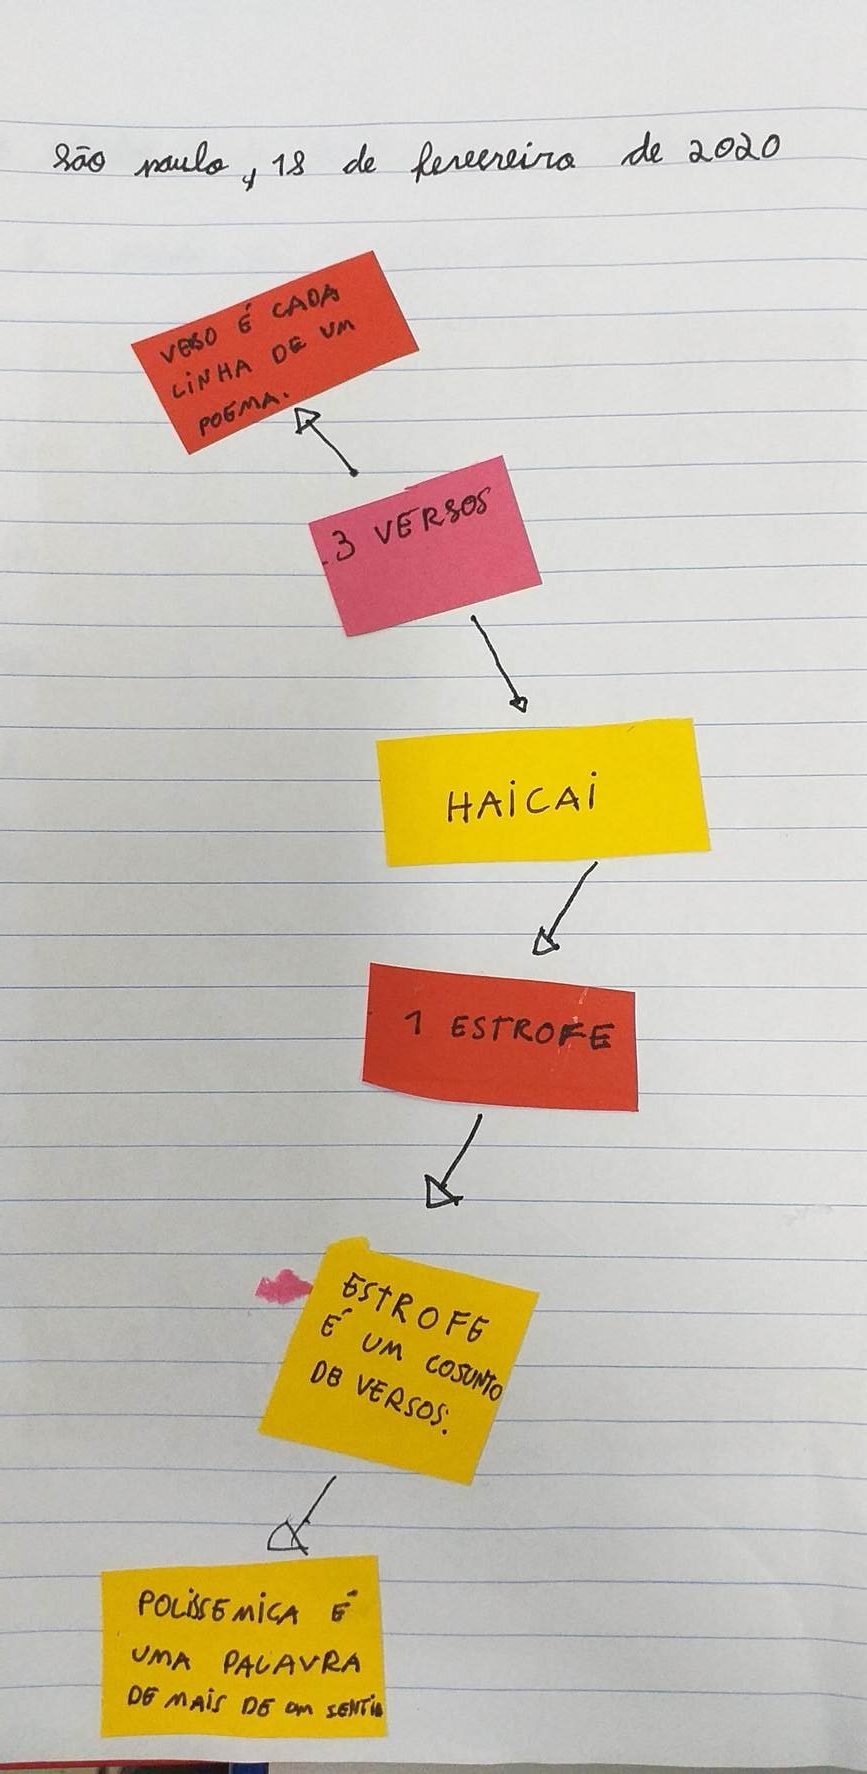 São paulo, 18 de fevereiro de 2020
VERSO É CADA
LINHA DE UM
POEMA.
3 VERSOS
HAICAI
1 ESTROFE
ESTROFE
É UM COJUNTO
DE VERSOS.
POLISSEMICA É
UMA PALAVRA
DE MAIS DE um SENTID